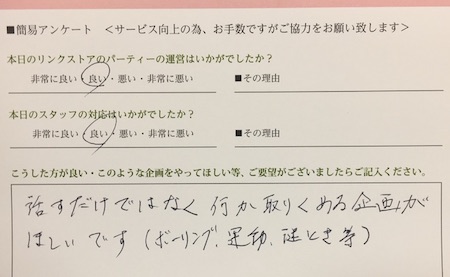 ■簡易アンケート ＜サービス向上の為、お手数ですがご協力をお願い致します＞
本日のリンクストアのパーティーの運営はいかがでしたか？
非常に良い・良い・悪い・非常に悪い ■その理由
本日のスタッフの対応はいかがでしたか？
非常に良い・良い・悪い・非常に悪い ■その理由
こうした方が良い・このような企画をやってほしい等、ご要望がございましたらご記入ください。
話すだけではなく何か取りくめる企画が
ほしいです（ボーリング、運動、謎とき等）